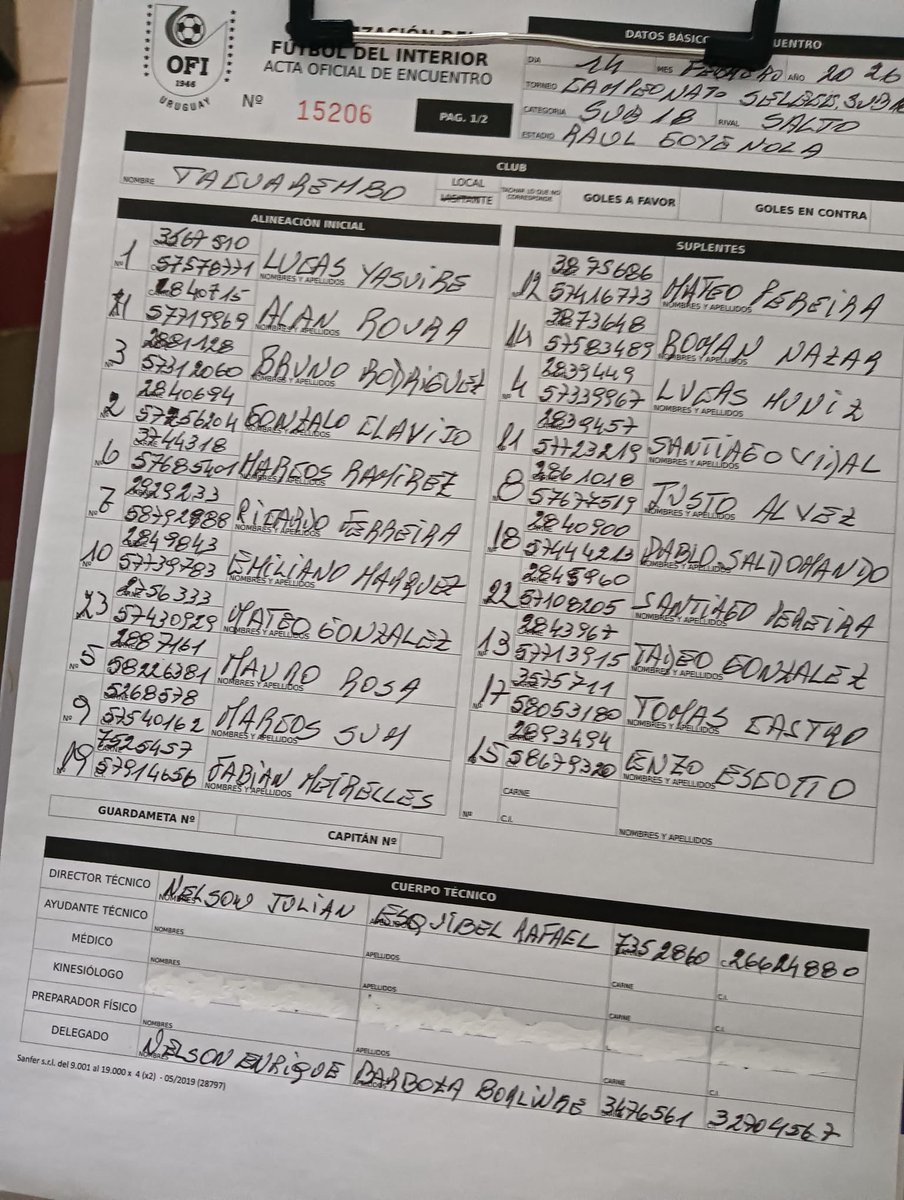 OFI
1946
URUGUAY
FÚTBOL DEL INTERIOR
ACTA OFICIAL DE ENCUENTRO
Nº 15206
PAG. 1/2
DATOS BÁSICO ENCUENTRO
DIA 14 MES FEBRERO AÑO 2026
TORNEO CAMPEONATO SELECS. SUB 18
CATEGORIA SUB 18 RIVAL SALTO
ESTADIO RAUL GOYENOLA
CLUB
NOMBRE TACUAREMBO LOCAL VISITANTE TACHAR LO QUE NO CORRESPONDE GOLES A FAVOR GOLES EN CONTRA
ALINEACIÓN INICIAL
1 3567510 57578771 LUCAS YASUIRE
11 2840715 57719969 ALAN ROVRA
3 2881128 57312060 BRUNO RODRIGUEZ
2 2840694 57256204 GONZALO CLAVIJO
6 3744318 57685401 MARCOS RAMIREZ
7 2929233 58792988 RICARDO FERREIRA
10 2849843 57739783 EMILIANO MARQUEZ
23 2756333 57430929 MATEO GONZALEZ
5 2887161 58226381 MAURO ROSA
9 5268578 57540162 MARCOS SUM
19 7525457 57914656 FABIAN MEIRELLES
GUARDAMETA Nº CAPITÁN Nº
SUPLENTES
12 3875686 57416773 MATEO PEREIRA
14 3873648 57583489 ROMAN NAZAR
4 2839449 57339967 LUCAS MUNIZ
21 2839457 57723219 SANTIAGO VIDAL
8 2861018 57677519 JUSTO ALVEZ
18 2840900 57444213 PABLO SALDOMANDO
22 2845960 57108205 SANTIAGO PEREIRA
13 2843967 57713915 TADEO GONZALEZ
17 3575711 58053180 TOMAS CASTRO
15 2893494 58679320 ENZO ESCOTTO
Nº CARNE C.I. NOMBRES Y APELLIDOS
CUERPO TÉCNICO
DIRECTOR TÉCNICO NELSON JULIAN ESQUIBEL RAFAEL 7352860 26624880
AYUDANTE TÉCNICO NOMBRES APELLIDOS CARNE C.I.
MÉDICO NOMBRES APELLIDOS CARNE C.I.
KINESIÓLOGO
PREPARADOR FÍSICO NOMBRES APELLIDOS CARNE C.I.
DELEGADO NELSON ENRIQUE BARBOZA 3476561 32704567
Sanfer s.r.l. del 9.001 al 19.000 x 4 (x2) - 05/2019 (28797)